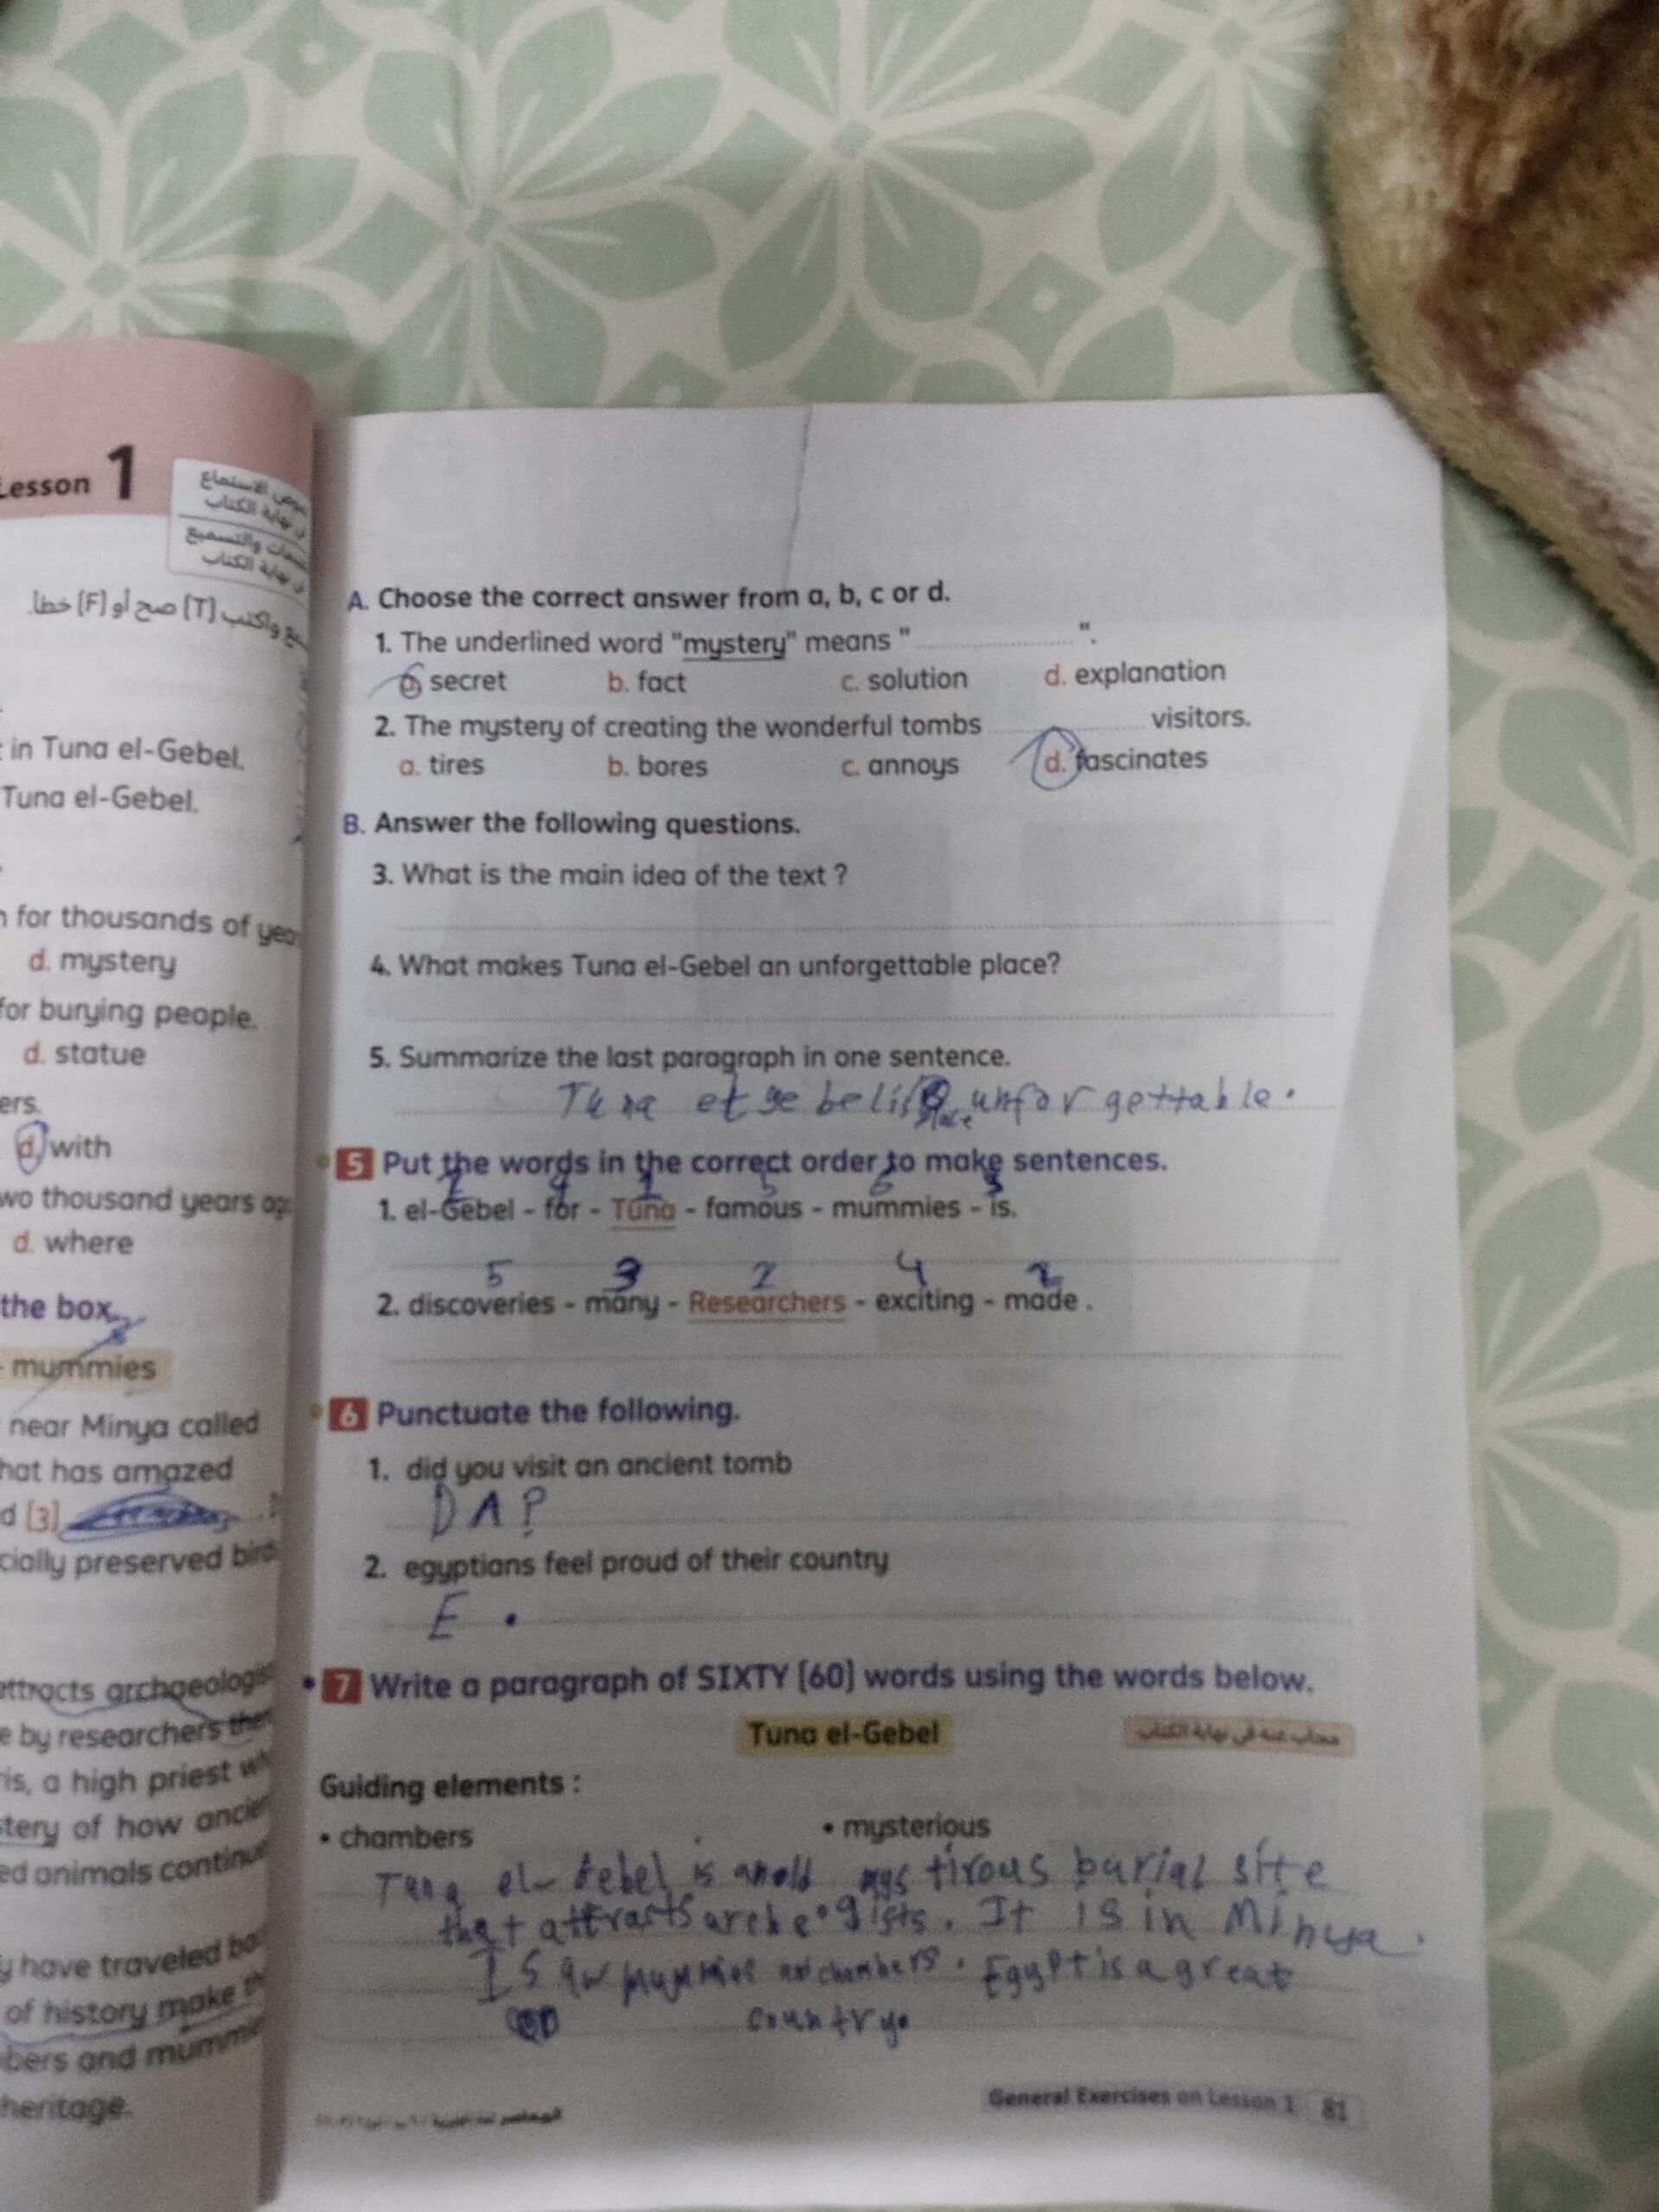 Lesson 1
نصوص الاستماع
في نهاية الكتاب
والتسميع
في نهاية الكتاب
واكتب (T) صح أو (F) خطأ.
in Tuna el-Gebel.
Tuna el-Gebel.
for thousands of
d. mystery
for burying people.
d. statue
ers.
d. with
two thousand years
d. where
the box.
- mummies
near Minya called
hat has amazed
d (3)
cially preserved
attracts
e by researchers
ris, a high priest
stery of how
ed animals
y have traveled
of history make
bers and
heritage.
A. Choose the correct answer from a, b, c or d.
1. The underlined word "mystery" means " ".
a. secret b. fact c. solution d. explanation
2. The mystery of creating the wonderful tombs visitors.
a. tires b. bores c. annoys d. fascinates
B. Answer the following questions.
3. What is the main idea of the text ?
4. What makes Tuna el-Gebel an unforgettable place?
5. Summarize the last paragraph in one sentence.
Tuna unforgettable.
5 Put the words in the correct order to make sentences.
2 4 1 5 6 3
1. el-Gebel - for - Tuna - famous - mummies - is.
5 3 4 2
2. discoveries - many - Researchers - exciting - made .
6 Punctuate the following.
1. did you visit an ancient tomb
D A ?
2. egyptians feel proud of their country
E .
7 Write a paragraph of SIXTY (60) words using the words below.
Tuna el-Gebel
مجاب عنه في نهاية الكتاب
Guiding elements :
• chambers • mysterious
Tuna el- is burial site
that attracts . It is in Minya.
Egypt is a great
country.
General Exercises on Lesson 1 81